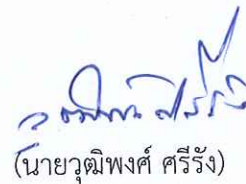 (นายวุฒิพงศ์ ศรีรัง)